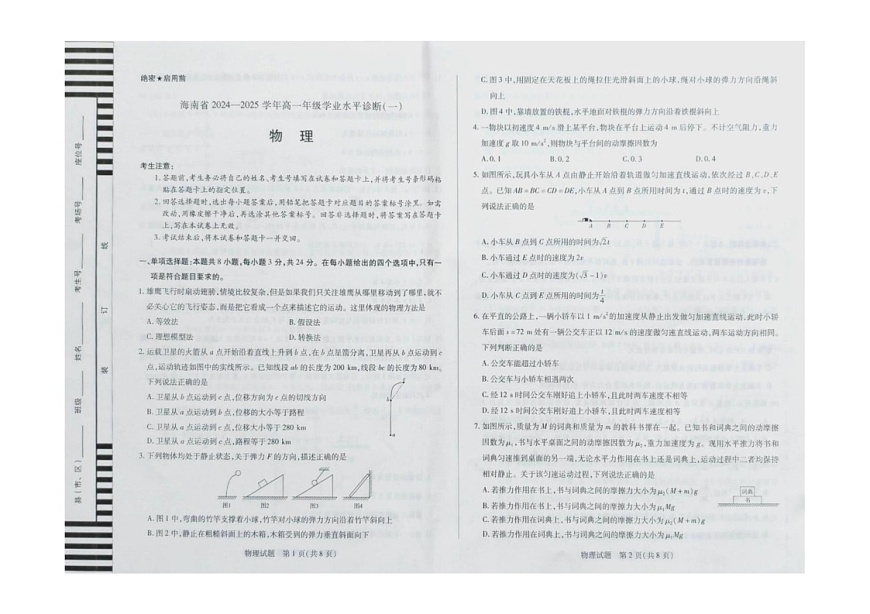 绝密★启用前
海南省 2024—2025 学年高一年级学业水平诊断(一)
物 理
考生注意:
1.答题前,考生务必将自己的姓名、考生号填写在试卷和答题卡上,并将考生号条形码粘
贴在答题卡上的指定位置。
2.回答选择题时,选出每小题答案后,用铅笔把答题卡对应题目的答案标号涂黑。如需
改动,用橡皮擦干净后,再选涂其他答案标号。回答非选择题时,将答案写在答题卡
上,写在本试卷上无效。
3.考试结束后,将本试卷和答题卡一并交回。
一、单项选择题:本题共 8 小题,每小题 3 分,共 24 分。在每小题给出的四个选项中,只有一
项是符合题目要求的。
1. 雄鹰飞行时扇动翅膀,情境比较复杂,但是如果我们只关注雄鹰从哪里移动到了哪里,就不
必关心它的飞行姿态,而是把它看成一个点来描述它的运动。这里体现的物理方法是
A. 等效法 B. 假设法
C. 理想模型法 D. 转换法
2. 运载卫星的火箭从 a 点开始沿着直线上升到 b 点,在 b 点星箭分离,卫星再从 b 点运动到 c
点,运动轨迹如图中的实线所示。已知线段 ab 的长度为 200 km,线段 bc 的长度为 80 km。
下列说法正确的是
A. 卫星从 b 点运动到 c 点,位移方向为 c 点的切线方向
B. 卫星从 a 点运动到 b 点,位移的大小等于路程
C. 卫星从 a 点运动到 c 点,位移大小等于 280 km
D. 卫星从 a 点运动到 c 点,路程等于 280 km
3. 下列物体均处于静止状态,关于弹力 F 的方向,描述正确的是
图1 图2 图3 图4
A. 图 1 中,弯曲的竹竿支撑着小球,竹竿对小球的弹力方向沿着竹竿斜向上
B. 图 2 中,静止在粗糙斜面上的木箱,木箱受到的弹力垂直斜面向下
物理试题 第 1 页(共 8 页)
C. 图 3 中,用固定在天花板上的绳拉住光滑斜面上的小球,绳对小球的弹力方向沿绳斜
向上
D. 图 4 中,靠墙放置的铁棍,水平地面对铁棍的弹力方向沿着铁棍斜向上
4. 一物块以初速度 4 m/s 滑上某平台,物块在平台上运动 4 m 后停下。不计空气阻力,重力
加速度 g 取 10 m/s²,则物块与平台间的动摩擦因数为
A. 0.1 B. 0.2 C. 0.3 D. 0.4
5. 如图所示,玩具小车从 A 点由静止开始沿着轨道做匀加速直线运动,依次经过 B、C、D、E
点。已知 AB=BC=CD=DE,小车从 A 点到 B 点所用时间为 t,通过 B 点时的速度为 v,下
列说法正确的是
A B C D E
A. 小车从 B 点到 C 点所用的时间为√2t
B. 小车通过 E 点时的速度为 2v
C. 小车通过 D 点时的速度为(√3−1)v
D. 小车从 C 点到 E 点所用的时间为
6. 在平直的公路上,一辆小轿车以 1 m/s²的加速度从静止出发做匀加速直线运动,此时小轿
车后面 s=72 m 处有一辆公交车正以 12 m/s 的速度做匀速直线运动,两车运动方向相同。
下列判断正确的是
A. 公交车能超过小轿车
B. 公交车与小轿车相遇两次
C. 经 12 s 时间公交车刚好追上小轿车,且此时两车速度不相等
D. 经 12 s 时间公交车刚好追上小轿车,且此时两车速度相等
7. 如图所示,质量为 M 的词典和质量为 m 的教科书摞在一起。已知书和词典之间的动摩擦
因数为 μ₁,书与水平桌面之间的动摩擦因数为 μ₂,重力加速度为 g。现用水平推力将书和
词典匀速推到桌面的另一端,无论水平力作用在书上还是词典上,运动过程中二者均保持
相对静止。关于该匀速运动过程,下列说法正确的是
词典
书
A. 若推力作用在书上,书与词典之间的摩擦力大小为 μ₂(M+m)g
B. 若推力作用在书上,书与词典之间的摩擦力大小为 μ₁Mg
C. 若推力作用在词典上,书与词典之间的摩擦力大小为 μ₂(M+m)g
D. 若推力作用在词典上,书与词典之间的摩擦力大小为 μ₁Mg
物理试题 第 2 页(共 8 页)
座位号
考场号
考生号
姓名
班级
县(市、区)
线
订
装